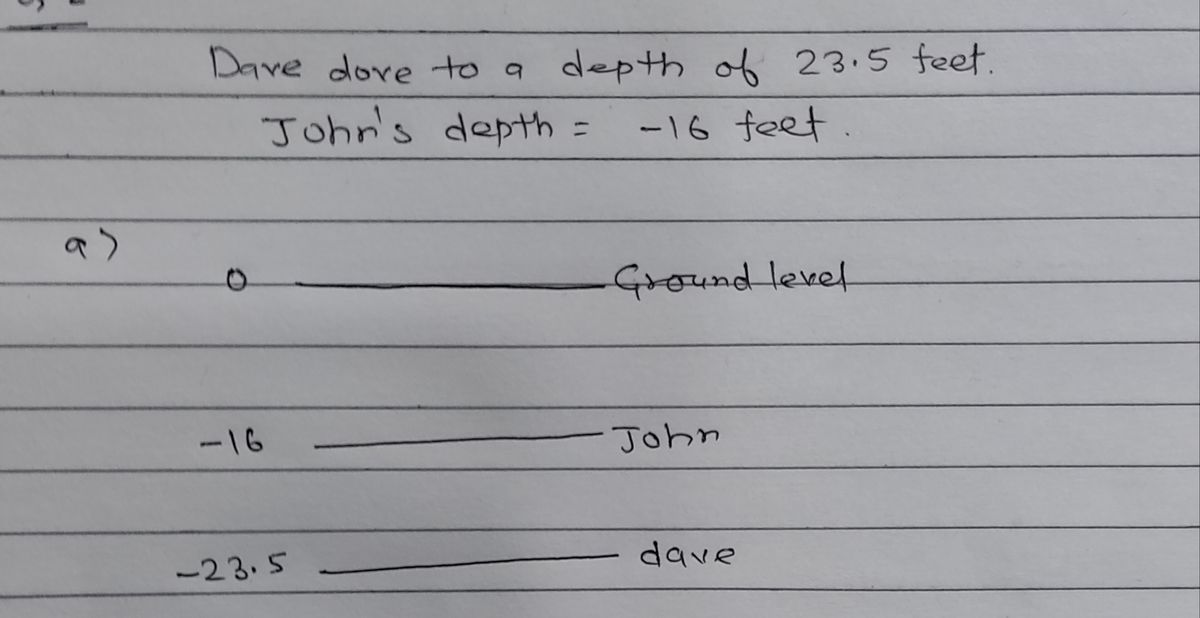 Dave dove to a depth of 23.5 feet.
John's depth = -16 feet.
a)
0 Ground level
-16 John
-23.5 dave